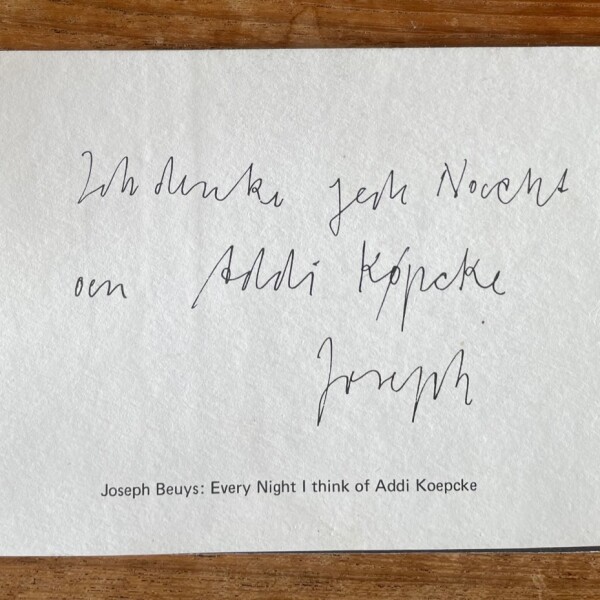 Ich denke jede Nacht
an Addi Køpcke
Joseph
Joseph Beuys: Every Night I think of Addi Koepcke